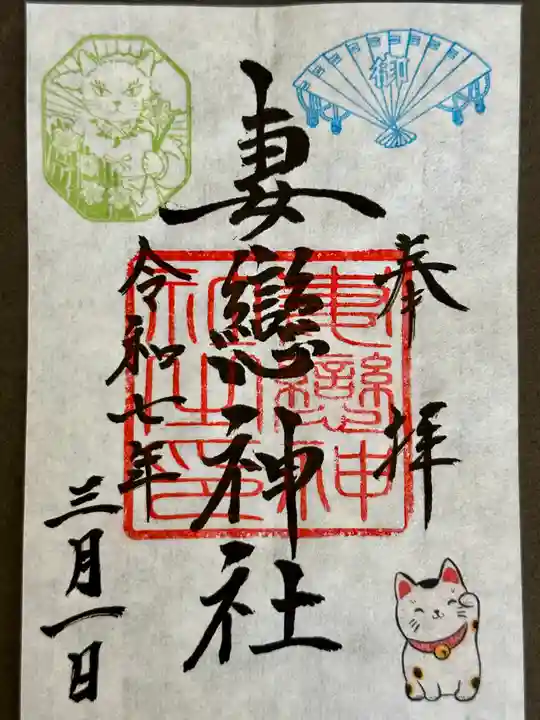 奉拝
御
妻戀神社
妻戀神
社之印
令和七年
三月一日